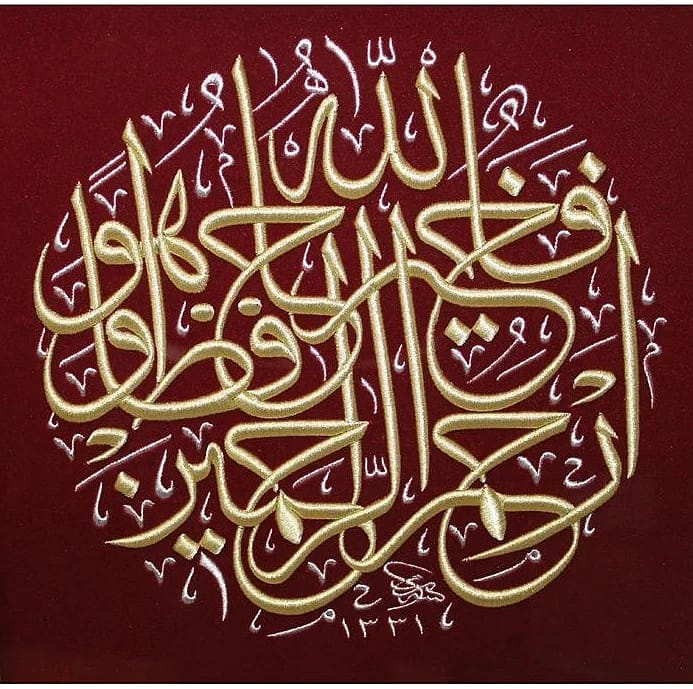 فالله خير حافظا وهو ارحم الرحمين
١٣٣١